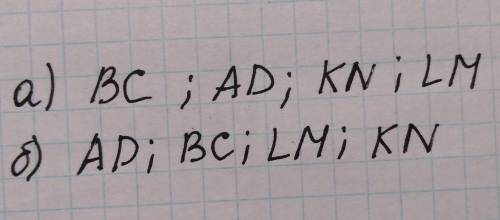 а) BC ; AD; KN; LM
б) AD; BC; LM; KN